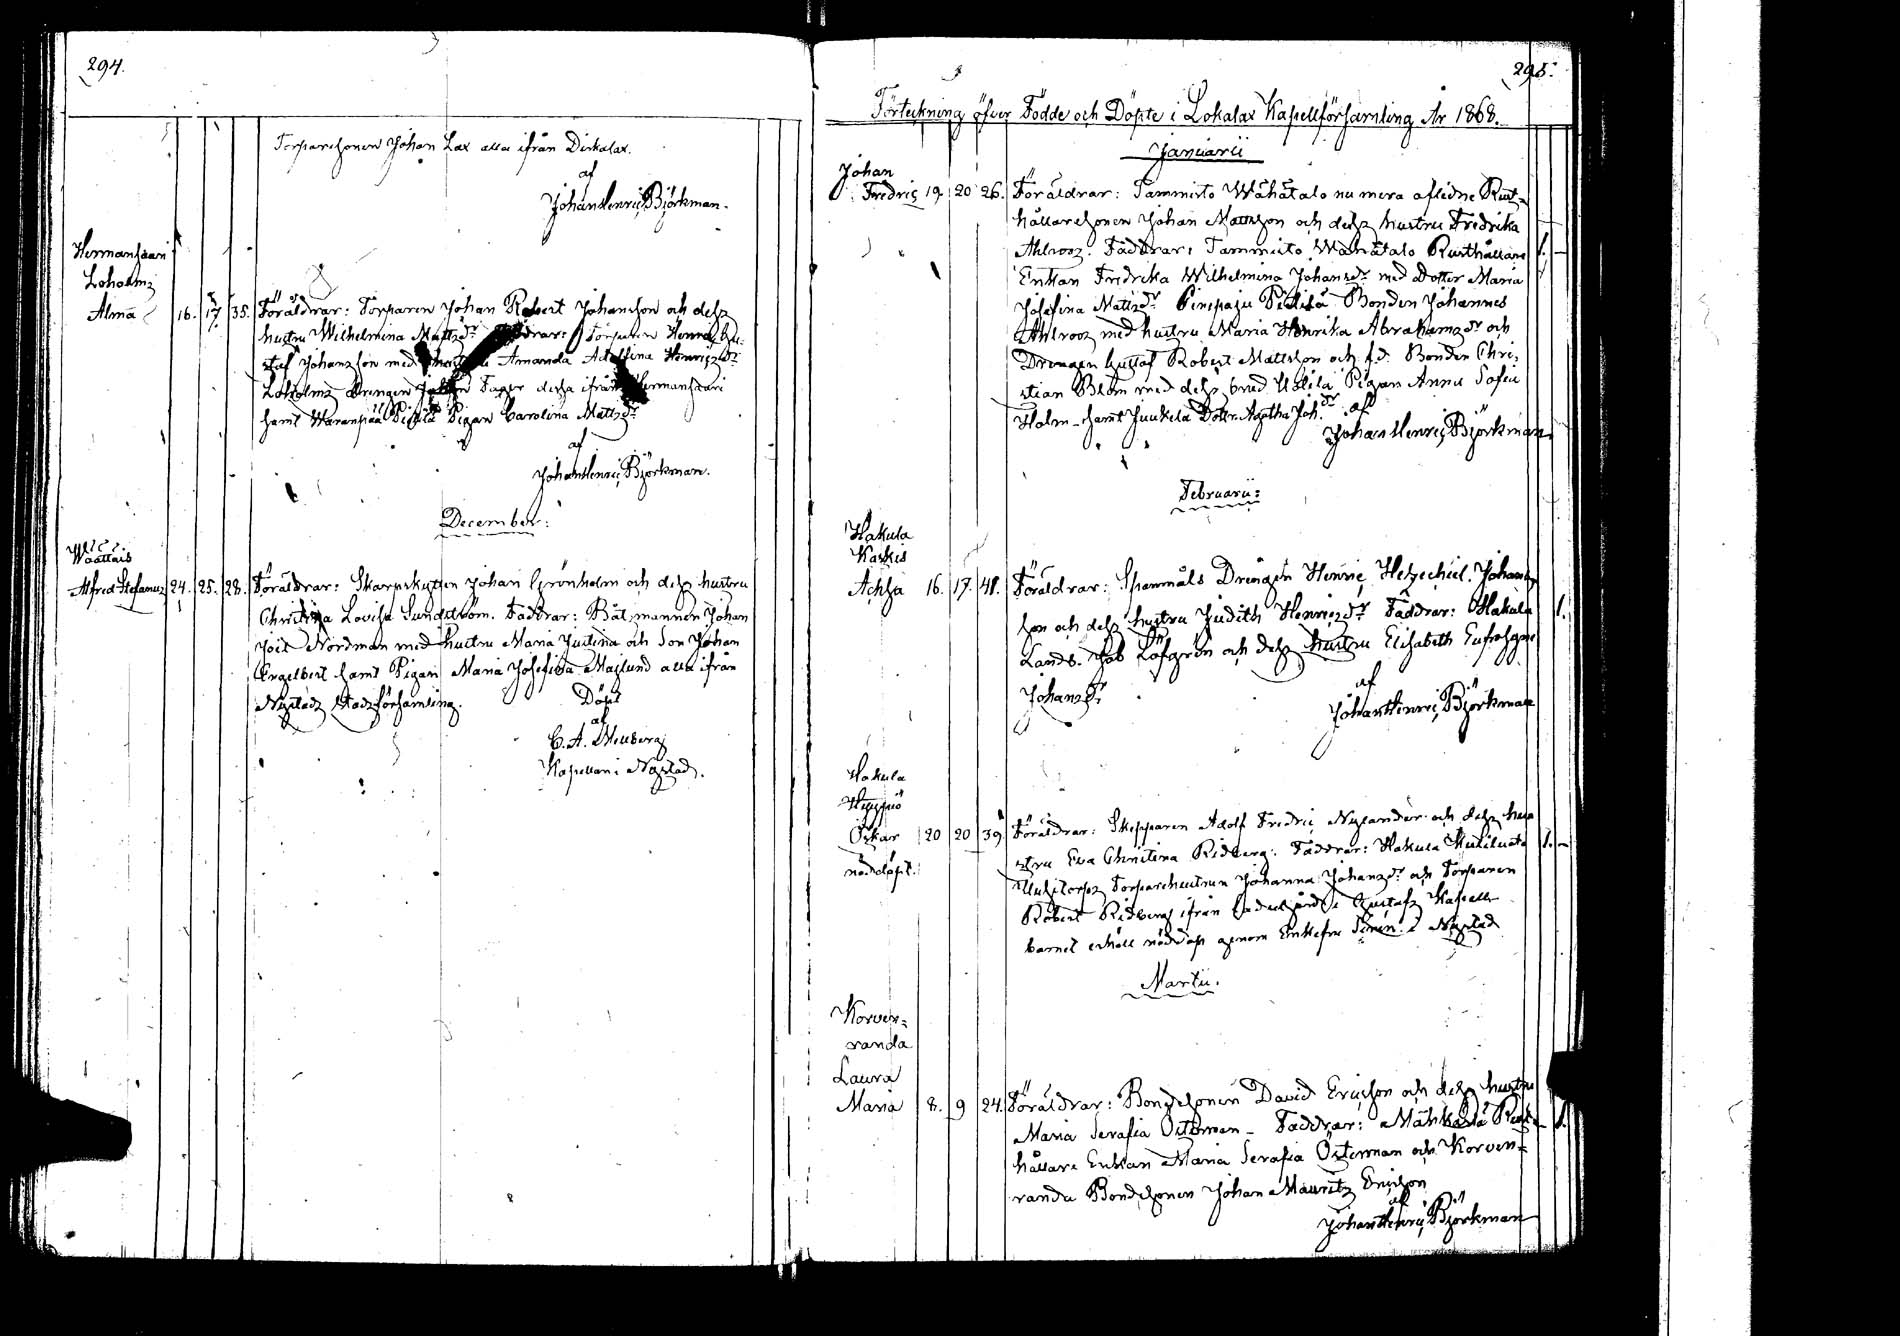 294.
Torparesonen Johan Lax alla ifrån Dirkalax.
af
Johan Henric Björkman.
Hermansaari
Loholms
Alma 16. 17. 35. Föräldrar: Torparen Johan Robert Johansson och dess
hustru Wilhelmina Mattsdr Faddrar: Torparen Henric Gu-
staf Johansson med hustru Amanda Adolfina Henricsdr
Loholms Drengen Johan Fager dessa ifrån Hermansaari
samt Waranpää Pietilä Pigan Carolina Mattsdr
af
Johan Henric Björkman.
December:
Waattais
Alfred Stefanus 24. 25. 28. Föräldrar: Skarpskytten Johan Grönholm och dess hustru
Christina Lovisa Sundström. Faddrar: Båtsmannen Johan
Joel Nordman med hustru Maria Justina och Son Johan
Engelbert samt Pigan Maria Josefina Maslund alla ifrån
Nystads Stadsförsamling.
Döpt
af
C. A. Mellberg
Kapellan i Nystad.
295.
Förteckning öfver Födde och Döpte i Lokalax Kapellförsamling År 1868.
Januarii
Johan
Fredric 19. 20 26. Föräldrar: Tammisto Wähätalo nu mera aflidne Rust-
hållaresonen Johan Mattsson och dess hustru Fredrika
Ahlroos. Faddrar: Tammisto Wähätalo Rusthållare 1. -
Enkan Fredrika Wilhelmina Johansdr med Dotter Maria
Josefina Mattsdr Pietilä Bonden Johannes
Ahlroos med hustru Maria Henrika Abrahamsdr och
Drengen Gustaf Robert Mattsson och f.d. Bonden Chri-
stian Blom med dess brud Pigan Anna Sofia
Holm samt Juukela Dottr. Agatha Joh.dr af
Johan Henric Björkman
Februarii:
Hakula
Kaskis
Achsa 16. 17. 41. Föräldrar: Spanmåls Drengen Henric Hezechiel Johans-
son och dess hustru Judith Henricsdr Faddrar: Hakula 1.
Lands. Job Löfgren och dess hustru Elisabeth Eufrosyne
Johansdr
af
Johan Henric Björkman
Hakula
Heggiö
Oskar 20 20 39 Föräldrar: Skepparen Adolf Fredric Nylander och dess hu- 1. -
stru Eva Christina Ridberg. Faddrar: Hakula
Uusitorps Torparehustrun Johanna Johansdr och Torparen
nöddöpt. Robert Ridberg ifrån i Gustafs Kapell
barnet erhöll nöddop genom Enkefru i Nystad
Martii.
Korven-
randa
Laura
Maria 8. 9 24. Föräldrar: Bondesonen David Ericsson och dess hustru
Maria Serafia Österman - Faddrar: Rust- 1.
hållare Enkan Maria Serafia Österman och Korven-
randa Bondesonen Johan Mauritz Ericsson
af
Johan Henric Björkman